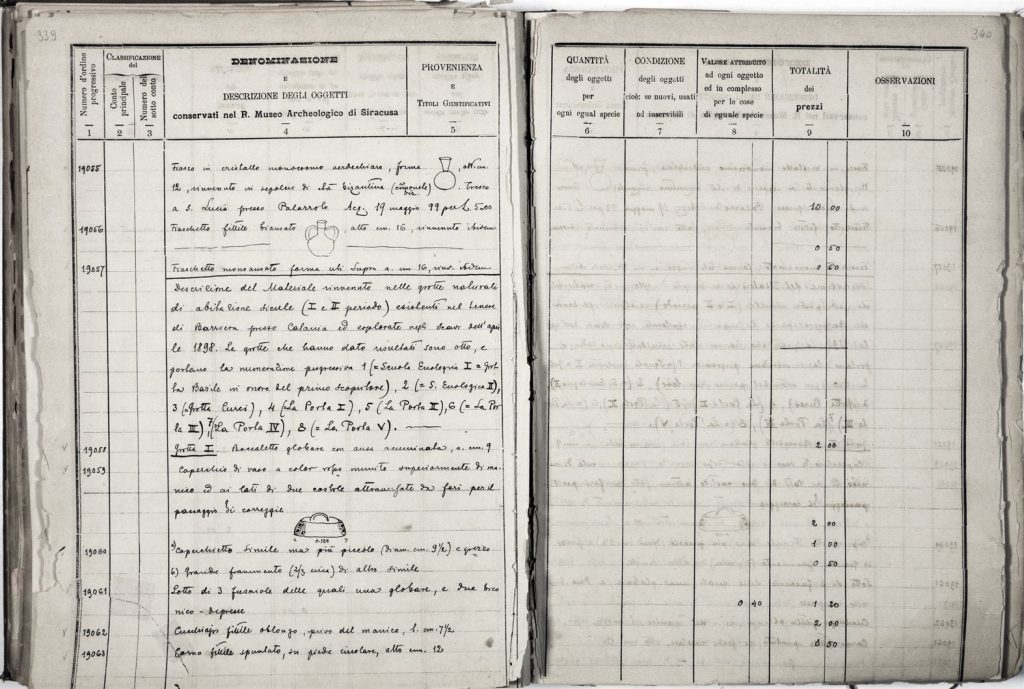 339
340
Numero d'ordine progressivo
CLASSIFICAZIONE del
Conto principale
Numero del sotto conto
DENOMINAZIONE
E
DESCRIZIONE DEGLI OGGETTI
conservati nel R. Museo Archeologico di Siracusa
PROVENIENZA
E
TITOLI GIUSTIFICATIVI
1 2 3 4 5
QUANTITÀ
degli oggetti
per
ogni egual specie
CONDIZIONE
degli oggetti
cioè: se nuovi, usati
od inservibili
VALORE ATTRIBUITO
ad ogni oggetto
ed in complesso
per le cose
di eguale specie
TOTALITÀ
dei
prezzi
OSSERVAZIONI
6 7 8 9 10
19055 Fiasco in cristallo monocromo verdechiaro, forma , alt. cm.
12, rinvenuto in sepolcro di età bizantina. Fresco
a S. Lucia presso Palazzolo. Acq. 19 maggio 99 per £ 5.00 10 00
19056 Fiaschetto fittile biansato alto cm. 16, rinvenuto ibidem
0 50
19057 Fiaschetto monoansato forma uti supra a. cm 16, rinv. ibidem 0 50
Descrizione del Materiale rinvenuto nelle grotte naturali
di abitazione sicule (I e II periodo) esistenti nel
di Barriera presso Catania ed esplorate negli scavi dell'apri
le 1898. Le grotte che hanno dato risultati sono otto, e
portano la numerazione progressiva 1 (= Scuola Enologica I = Grot
ta Basile in onore del primo scopritore), 2 (= S. Enologica II),
3 (= Grotta Curci), 4 (= La Porta I), 5 (La Porta II), 6 (= La Por
ta III), 7 (= La Porta IV), 8 (= La Porta V).
19058 Grotta I. Boccaletto globare con ansa accuminata, a. cm. 9 2 00
19059 Coperchio di vaso a color rosso munito superiormente di ma
nico ed ai lati di due costole attraversate da fori per il
passaggio di correggie
0-129
2 00
19060 a) Coperchietto simile ma più piccolo (diam. cm. 9 1/2) e grezzo 1 00
b) Grande frammento (2/3 circa) di altro simile 0 50
19061 Lotto di 3 fusarole delle quali una globare, e due bico
nico-depresse 0 40 1 20
19062 Cucchiajo fittile oblongo, privo del manico, l. cm. 7 1/2 2 00
19063 Corno fittile spuntato, su piede circolare, alto cm. 12 0 50